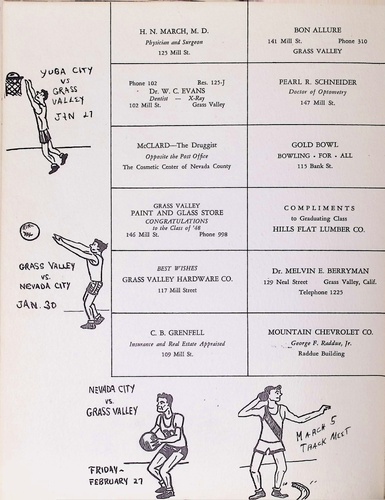 YUBA CITY
VS
GRASS
VALLEY
JAN 27
GRASS VALLEY
VS.
NEVADA CITY
JAN. 30
H. N. MARCH, M. D.
Physician and Surgeon
123 Mill St.
BON ALLURE
141 Mill St. Phone 310
GRASS VALLEY
Phone 102 Res. 125-J
Dr. W. C. EVANS
Dentist — X-Ray
102 Mill St. Grass Valley
PEARL R. SCHNEIDER
Doctor of Optometry
147 Mill St.
McCLARD—The Druggist
Opposite the Post Office
The Cosmetic Center of Nevada County
GOLD BOWL
BOWLING - FOR - ALL
115 Bank St.
GRASS VALLEY
PAINT AND GLASS STORE
CONGRATULATIONS
to the Class of '48
146 Mill St. Phone 998
COMPLIMENTS
to Graduating Class
HILLS FLAT LUMBER CO.
BEST WISHES
GRASS VALLEY HARDWARE CO.
117 Mill Street
Dr. MELVIN E. BERRYMAN
129 Neal Street Grass Valley, Calif.
Telephone 1225
C. B. GRENFELL
Insurance and Real Estate Appraised
109 Mill St.
MOUNTAIN CHEVROLET CO.
George F. Raddue, Jr.
Raddue Building
NEVADA CITY
VS.
GRASS VALLEY
FRIDAY-
FEBRUARY 27
MARCH 5
TRACK MEET